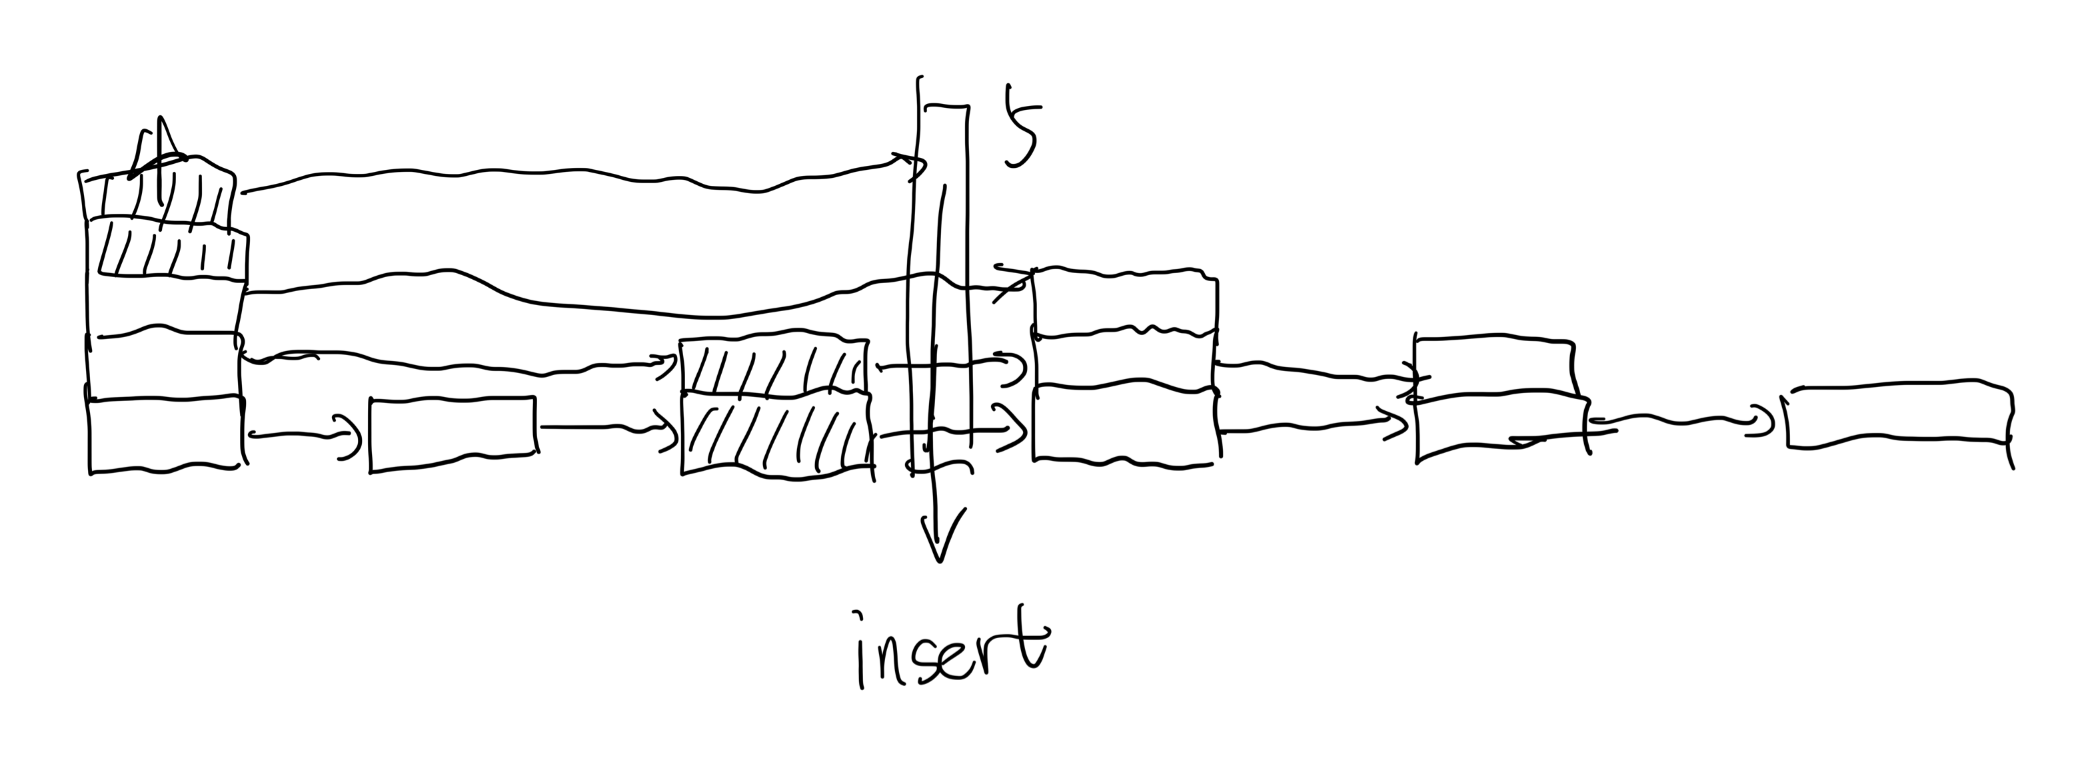 5
insert